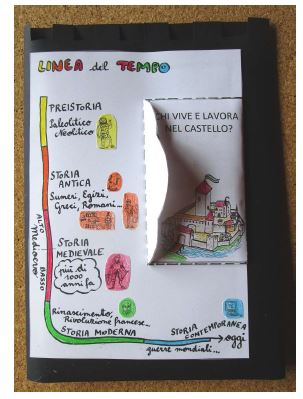 LINEA del TEMPO
PREISTORIA
Paleolitico
Neolitico
STORIA
ANTICA
Sumeri, Egizi,
Greci, Romani...
ALTO
BASSO
Medioevo
STORIA
MEDIEVALE
più di
1000
anni fa
Rinascimento,
Rivoluzione francese...
STORIA MODERNA
STORIA
CONTEMPORANEA
oggi
guerre mondiali...
CHI VIVE E LAVORA
NEL CASTELLO?